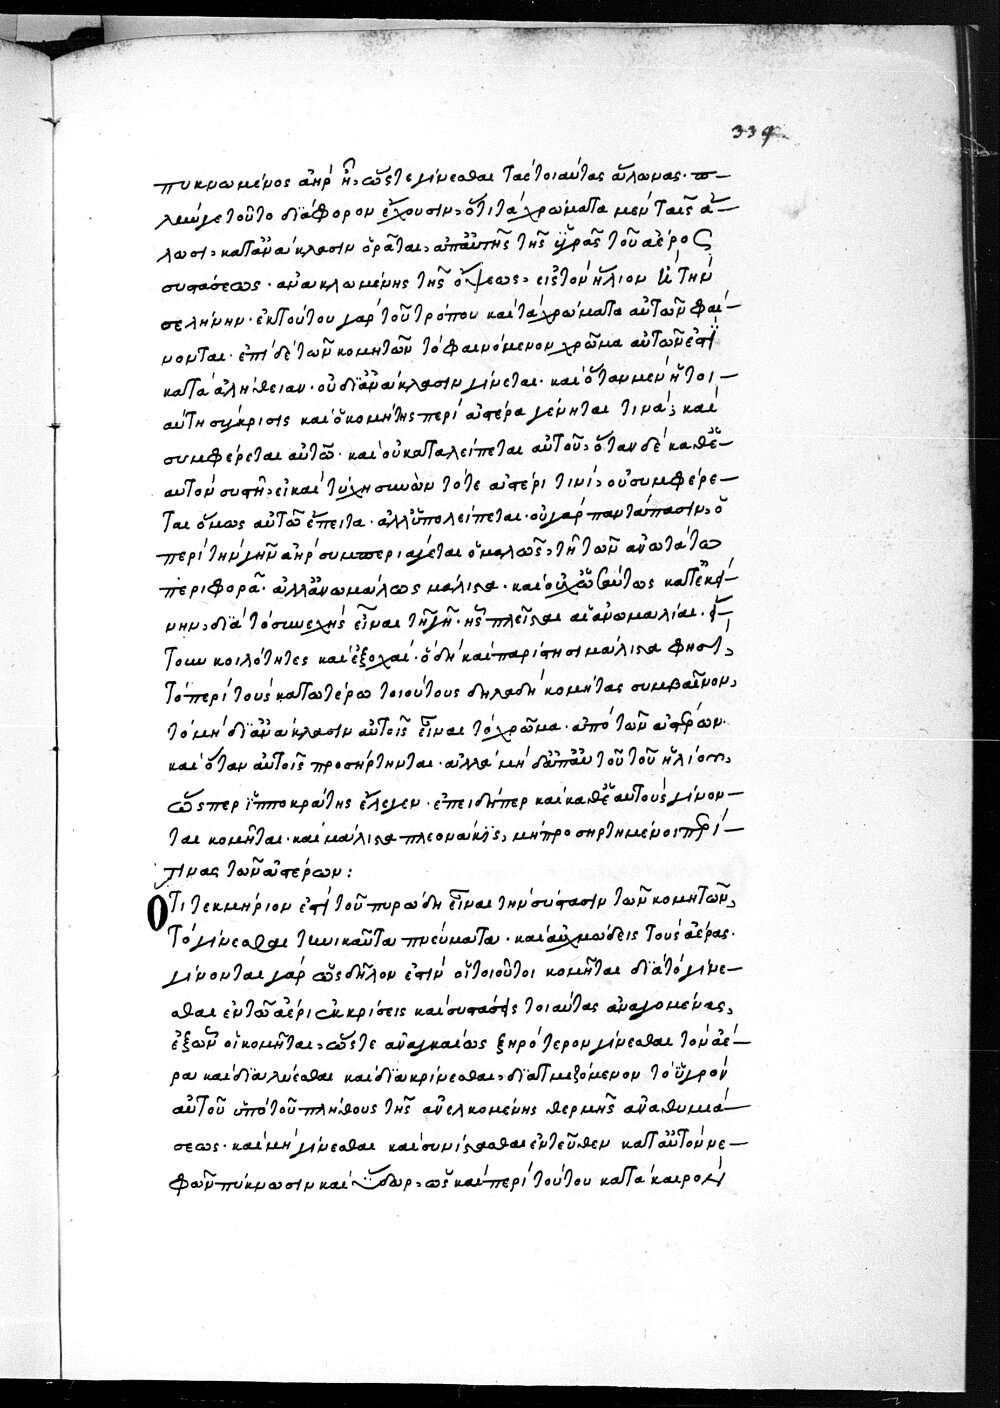 339
πυκνωμένος ἀὴρ ᾖ, ὥςτε γίνεσθαι τὰς τοιαύτας ἅλωνας· π-
λήν γε τοῦτο διάφορον ἔχουσιν, ὅτι τὰ χρώματα μὲν ταῖς ἅ-
λωσι, κατ' ἀνάκλασιν ὁρᾶται, ἀπ' αὐτῆς τῆς ὑγρᾶς τοῦ ἀέρος
συστάσεως· ἀνακλωμένης τῆς ὄψεως, εἰς τὸν ἥλιον ἢ τὴν
σελήνην· ἐκ τούτου γὰρ τοῦ τρόπου καὶ τὰ χρώματα αὐτῶν φαί-
νονται· ἐπὶ δὲ τῶν κομητῶν τὸ φαινόμενον χρῶμα αὐτῶν ἐστὶ
κατὰ ἀλήθειαν· οὐ δι' ἀνάκλασιν γίνεται· καὶ ὅταν μὲν ἡ τοι-
αύτη σύγκρισις καὶ ὁ κομήτης περὶ ἀστέρα γένηται τινὰ, καὶ
συμφέρεται αὐτῶ· καὶ οὐ καταλείπεται αὐτοῦ, ὅταν δὲ καθ' ἑ-
αυτὸν συστῆ, εἰ καὶ τύχη συνὼν τότε ἀστέρι τινὶ, οὐ συμφέρε-
ται ὅμως αὐτῶ ἔπειτα· ἀλλ' ὑπολείπεται· οὐ γὰρ παντάπασιν, ὁ
περὶ τὴν γῆν ἀὴρ συμπεριάγεται ὁμαλῶς, τῆ τῶν ἀνωτάτω
περιφορᾶ· ἀλλ' ἀνωμάλως μάλιστα· καὶ οὐχ ὡσαύτως κατ' ἐκεί-
νην, διὰ τὸ συνεχὴς εἶναι τῆ γῆ· ἧς πλεῖσται αἱ ἀνωμαλίαι·
κοιλότητες καὶ ἐξοχαί· ὃ δὴ καὶ παρίστησι μάλιστα φησὶ,
τὸ περὶ τοὺς κατωτέρω τοιούτους δηλαδὴ κομήτας συμβαῖνον,
τὸ μὴ δι' ἀνάκλασιν αὐτοῖς εἶναι τὸ χρῶμα· ἀπὸ τῶν ἀστέρων·
καὶ ὅταν αὐτοῖς προσήρτηνται· ἀλλὰ μὴ δ' ἀπ' αὐτοῦ τοῦ ἡλίου,
ὥςπερ ἱπποκράτης ἔλεγεν· ἐπειδήπερ καὶ καθ' ἑαυτοὺς γίνον-
ται κομῆται· καὶ μάλιστα πλεονάκις, μὴ προσηρτημένοι περί
τινας τῶν ἀστέρων:
Ὅτι τεκμήριον ἐστὶ τοῦ πυρώδη εἶναι τὴν σύστασιν τῶν κομητῶν,
τὸ γίνεσθαι τηνικαῦτα πνεύματα· καὶ αὐχμώδεις τοὺς ἀέρας·
γίνονται γὰρ ὡς δῆλον ἐστὶν οἱ τοιοῦτοι κομῆται διὰ τὸ γίνε-
σθαι ἐν τῶ ἀέρι ἐκκρίσεις καὶ συστάσεις τοιαύτας ἀναγομένας,
ἐξ ὧν οἱ κομῆται, ὥςτε ἀναγκαίως ξηρότερον γίνεσθαι τὸν ἀέ-
ρα καὶ διαλύεσθαι καὶ διακρίνεσθαι, διατμιζόμενον τὸ ὑγρὸν
αὐτοῦ ὑπὸ τοῦ πλήθους τῆς ἀνελκομένης θερμῆς ἀναθυμιά-
σεως· καὶ μὴ γίνεσθαι καὶ συνίστασθαι ἐντεῦθεν κατ' αὐτὸν νε-
φῶν πύκνωσιν καὶ ὕδωρ, ὡς καὶ περὶ τούτου κατὰ καιρὸν